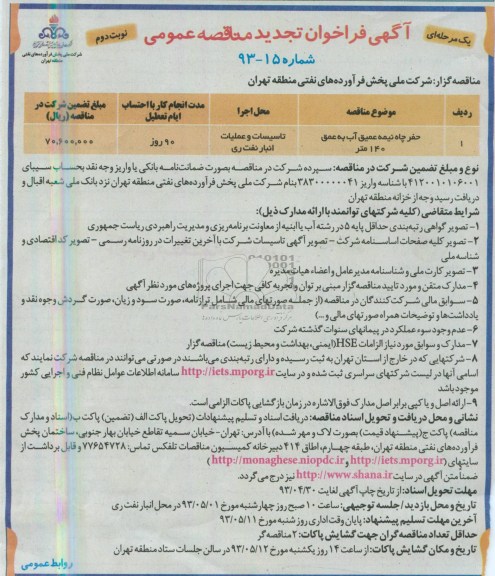 یک مرحله‌ای
آگهی فراخوان تجدید مناقصه عمومی
نوبت دوم
شماره ۱۵-۹۳
شرکت ملی پخش فرآورده‌های نفتی
منطقه تهران
مناقصه گزار: شرکت ملی پخش فرآورده‌های نفتی منطقه تهران
ردیف | موضوع مناقصه | محل اجرا | مدت انجام کار با احتساب ایام تعطیل | مبلغ تضمین شرکت در مناقصه (ریال)
۱ | حفر چاه نیمه عمیق آب به عمق ۱۴۰ متر | تاسیسات و عملیات انبار نفت ری | ۹۰ روز | ۷۰,۶۰۰,۰۰۰
نوع و مبلغ تضمین شرکت در مناقصه: سپرده شرکت در مناقصه بصورت ضمانت‌نامه بانکی یا واریز وجه نقد بحساب سیبای
۴۱۲۰۰۱۰۱۰۶۰۰۱ با شناسه واریز ۳۸۳۰۰۰۰۰۰۴۱ بنام شرکت ملی پخش فرآورده‌های نفتی منطقه تهران نزد بانک ملی شعبه اقبال و
دریافت رسید وجه از خزانه منطقه تهران
شرایط متقاضی (کلیه شرکتهای توانمند با ارائه مدارک ذیل):
۱- تصویر گواهی رتبه‌بندی حداقل پایه ۵ در رشته آب یا ابنیه از معاونت برنامه‌ریزی و مدیریت راهبردی ریاست جمهوری
۲- تصویر کلیه صفحات اساسنامه شرکت - تصویر آگهی تاسیسات شرکت با آخرین تغییرات در روزنامه رسمی - تصویر کد اقتصادی و
شناسه ملی
۳- تصویر کارت ملی و شناسنامه مدیرعامل و اعضاء هیات مدیره
۴- مدارک متقن و مورد تایید مناقصه گزار مبنی بر توان و تجربه کافی جهت اجرای پروژه‌های مورد نظر آگهی
۵- سوابق مالی شرکت کنندگان در مناقصه (از جمله صورتهای مالی شامل ترازنامه، صورت سود و زیان، صورت گردش وجوه نقد و
یادداشت‌ها و توضیحات همراه صورتهای مالی و...)
۶- عدم وجود سوء عملکرد در پیمانهای سنوات گذشته شرکت
۷- مدارک و سوابق مورد نیاز الزامات HSE (ایمنی، بهداشت و محیط زیست) مناقصه گزار
۸- شرکتهایی که در خارج از استان تهران به ثبت رسیده و دارای رتبه‌بندی می‌باشند در صورتی می‌توانند در مناقصه شرکت نمایند که
اسامی آنها در لیست شرکتهای سراسری ثبت شده و در سایت http://iets.mporg.ir سامانه اطلاعات عوامل نظام فنی و اجرایی کشور
موجود باشد
۹- ارائه اصل و یا کپی برابر اصل مدارک فوق‌الاشاره در زمان بازگشایی پاکات الزامی است.
نشانی و محل دریافت و تحویل اسناد مناقصه: دریافت اسناد و تسلیم پیشنهادات (تحویل پاکت الف (تضمین) پاکت ب (اسناد و مدارک
مناقصه) پاکت ج (پیشنهاد قیمت) بصورت لاک و مهر شده) با آدرس: تهران- خیابان سمیه تقاطع خیابان بهار جنوبی، ساختمان پخش
فرآورده‌های نفتی منطقه تهران، طبقه چهارم، اطاق ۴۱۴ دبیرخانه کمیسیون مناقصات تلفکس تماس: ۷۷۶۵۴۷۲۸ و قابل برداشت از
سایتهای (http://iets.mporg.ir و http://monaghese.niopdc.ir)
ضمناً متن آگهی در سایت http://www.shana.ir نیز درج می‌گردد.
مهلت تحویل اسناد: از تاریخ چاپ آگهی لغایت ۹۳/۰۴/۳۰
تاریخ و محل بازدید / جلسه توجیهی: ساعت ۱۰ صبح روز چهارشنبه مورخ ۹۳/۰۵/۰۱ در محل انبار نفت ری
آخرین مهلت تسلیم پیشنهاد: پایان وقت اداری روز شنبه مورخ ۹۳/۰۵/۱۱
حداقل تعداد مناقصه گران جهت گشایش پاکات: ۲ مناقصه گر
تاریخ و مکان گشایش پاکات: از ساعت ۱۴ روز یکشنبه مورخ ۹۳/۰۵/۱۲ در سالن جلسات ستاد منطقه تهران
روابط عمومی